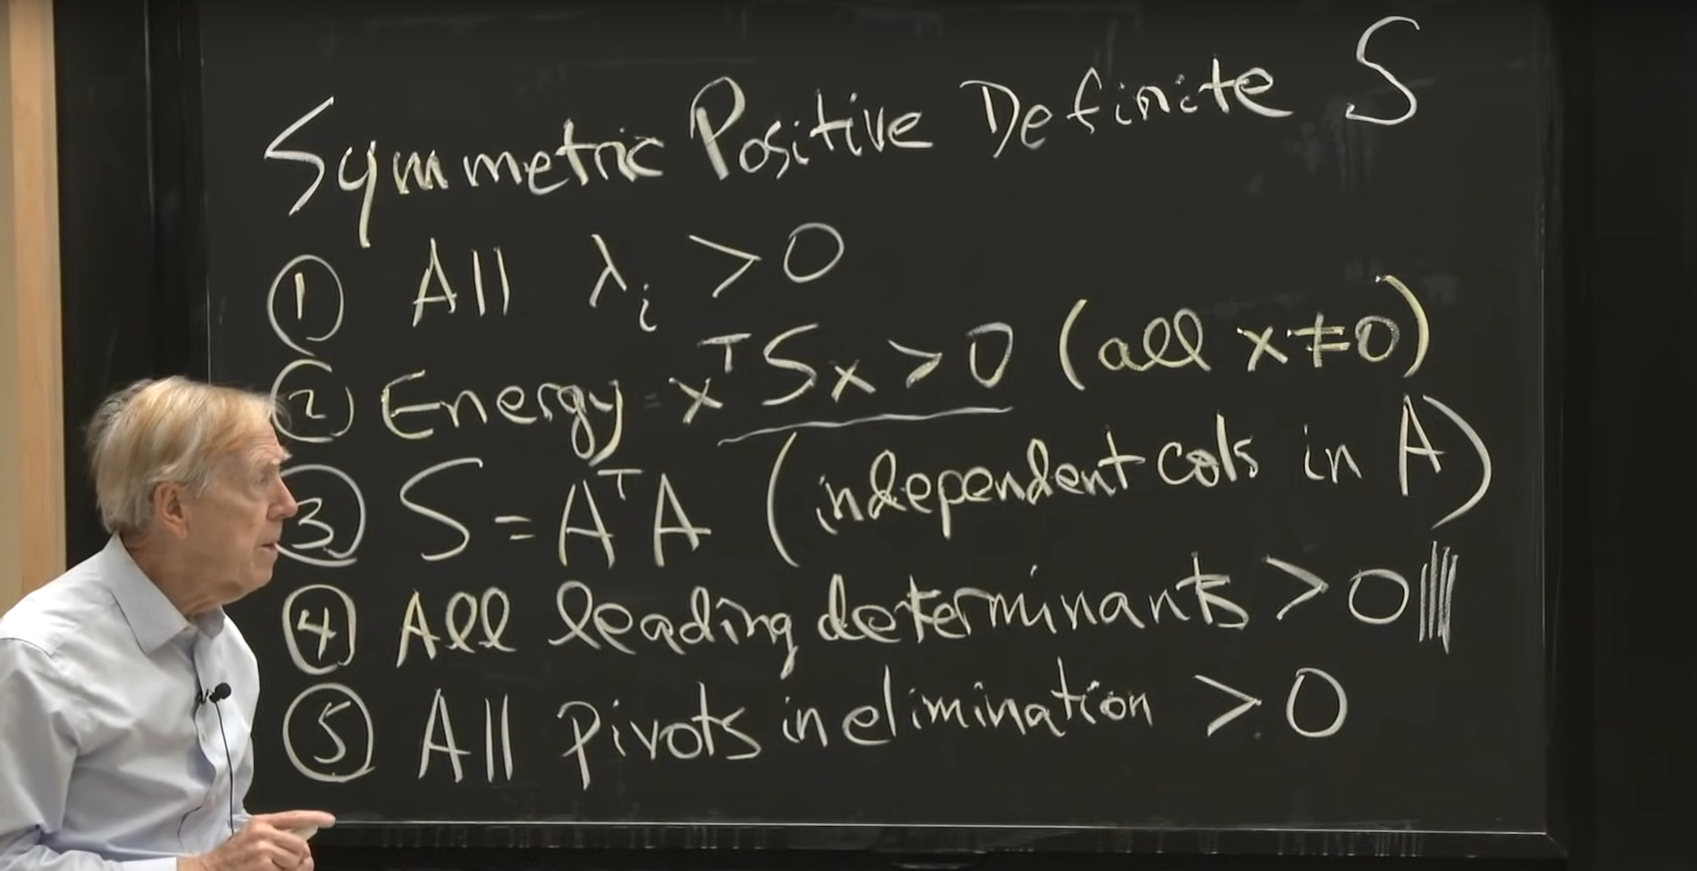 Symmetric Positive Definite S
① All λᵢ > 0
② Energy = xᵀSx > 0 (all x ≠ 0)
③ S = AᵀA (independent cols in A)
④ All leading determinants > 0
⑤ All pivots in elimination > 0